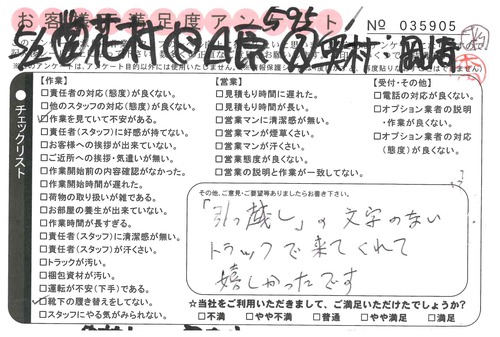 お客様満足度アンケート
595
No 035905
5/2
チェックリスト
【作業】
□責任者の対応(態度)が良くない。
□他のスタッフの対応(態度)が良くない。
□作業を見ていて不安がある。
□責任者(スタッフ)に好感が持てない。
□お客様への挨拶が出来ていない。
□ご近所への挨拶・気遣いが無い。
□作業開始前の内容確認がなかった。
□作業開始時間が遅れた。
□荷物の取り扱いが雑である。
□お部屋の養生が出来ていない。
□作業時間が長すぎる。
□責任者(スタッフ)に清潔感が無い。
□責任者(スタッフ)が汗くさい。
□トラックが汚い。
□梱包資材が汚い。
□運転が不安(下手)である。
□靴下の履き替えをしてない。
□スタッフにやる気がみられない。
【営業】
□見積もり時間に遅れた。
□見積もり時間が長い。
□営業マンに清潔感が無い。
□営業マンが煙草くさい。
□営業マンが汗くさい。
□営業態度が良くない。
□営業の説明と作業が一致してない。
【受付・その他】
□電話の対応が良くない。
□オプション業者の説明
・作業が良くない。
□オプション業者の対応
(態度)が良くない。
その他、ご意見・ご要望等ありましたらお書き下さい。
「引っ越し」の文字のない
トラックで来てくれて
嬉しかったです
☆当社をご利用いただきまして、ご満足いただけたでしょうか?
□不満 □やや不満 □普通 □やや満足 □満足